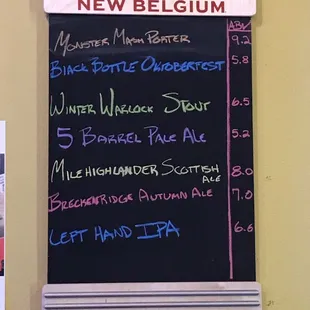 NEW BELGIUM
ABV
Monster Mash Porter 9.2
Black Bottle Oktoberfest 5.8
Winter Warlock Stout 6.5
5 Barrel Pale Ale 5.2
Mile Highlander Scottish Ale 8.0
Breckenridge Autumn Ale 7.0
Left Hand IPA 6.6